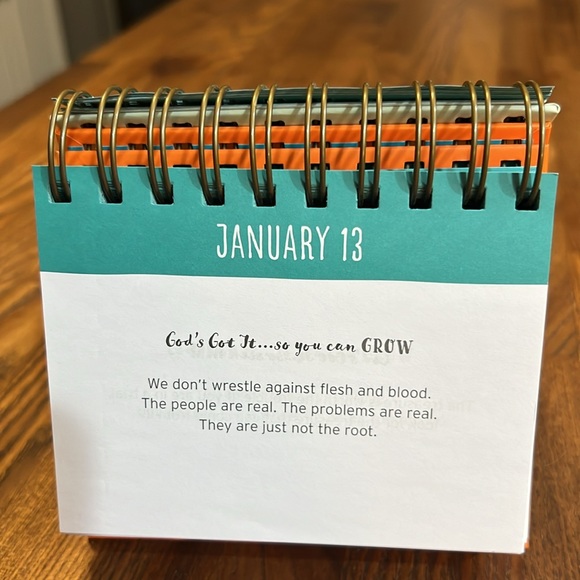 JANUARY 13
God's Got It...so you can GROW
We don't wrestle against flesh and blood.
The people are real. The problems are real.
They are just not the root.